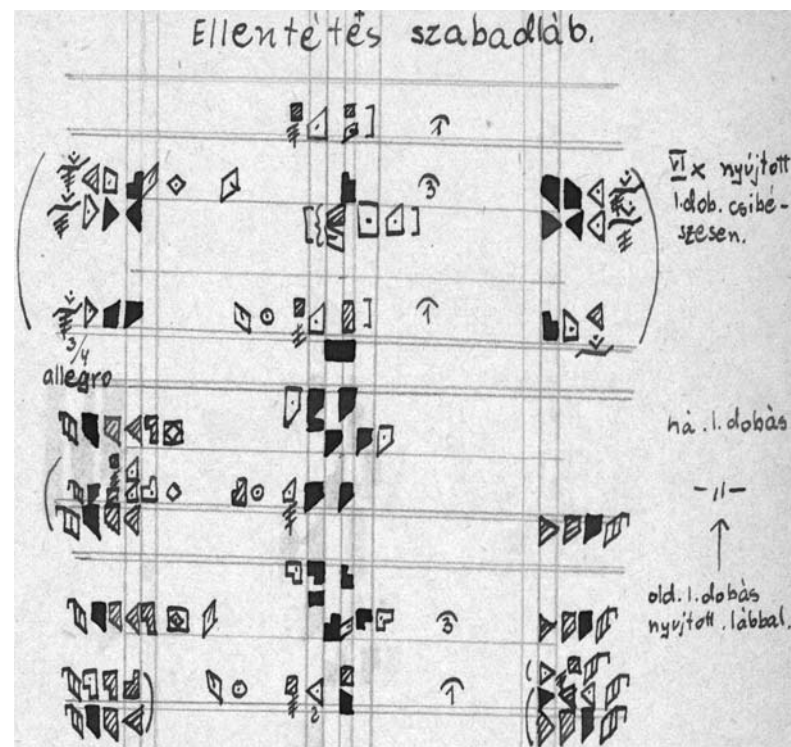 Ellentétés szabadláb.
1
VI x nyújtott
l.dob. csibé-
szesen.
3
1
3/4
allegro
há. l. dobás
-〃-
old. l. dobás
nyújtott. lábbal.
3
1
2